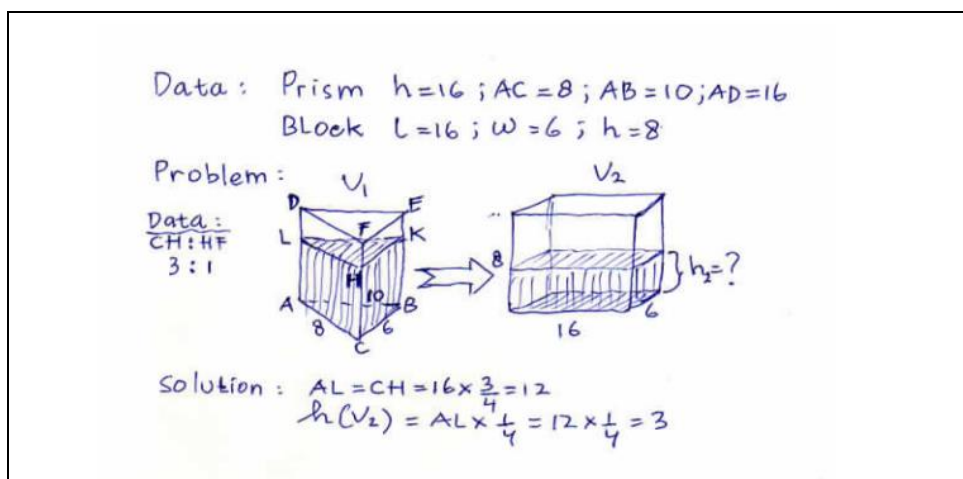 Data : Prism h=16 ; AC=8 ; AB=10 ; AD=16
BLOCK l=16 ; w=6 ; h=8
Problem :
V₁
V₂
Data :
CH : HF
3 : 1
D
E
F
L
K
H
A
10
B
8
6
C
8
h₂=?
6
16
Solution : AL = CH = 16 × 3/4 = 12
h(V₂) = AL × 1/4 = 12 × 1/4 = 3